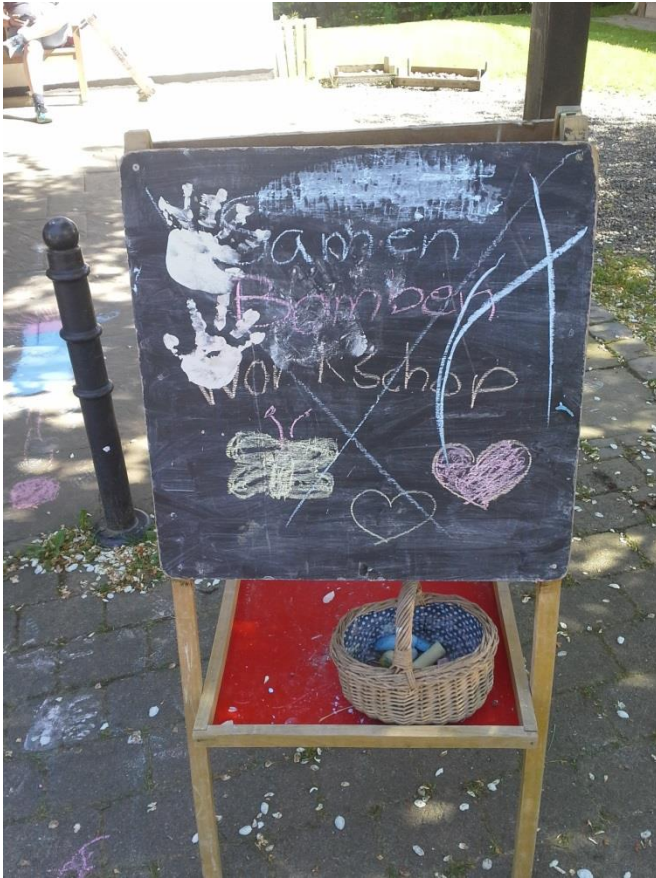 Samen
Bomben
Workshop